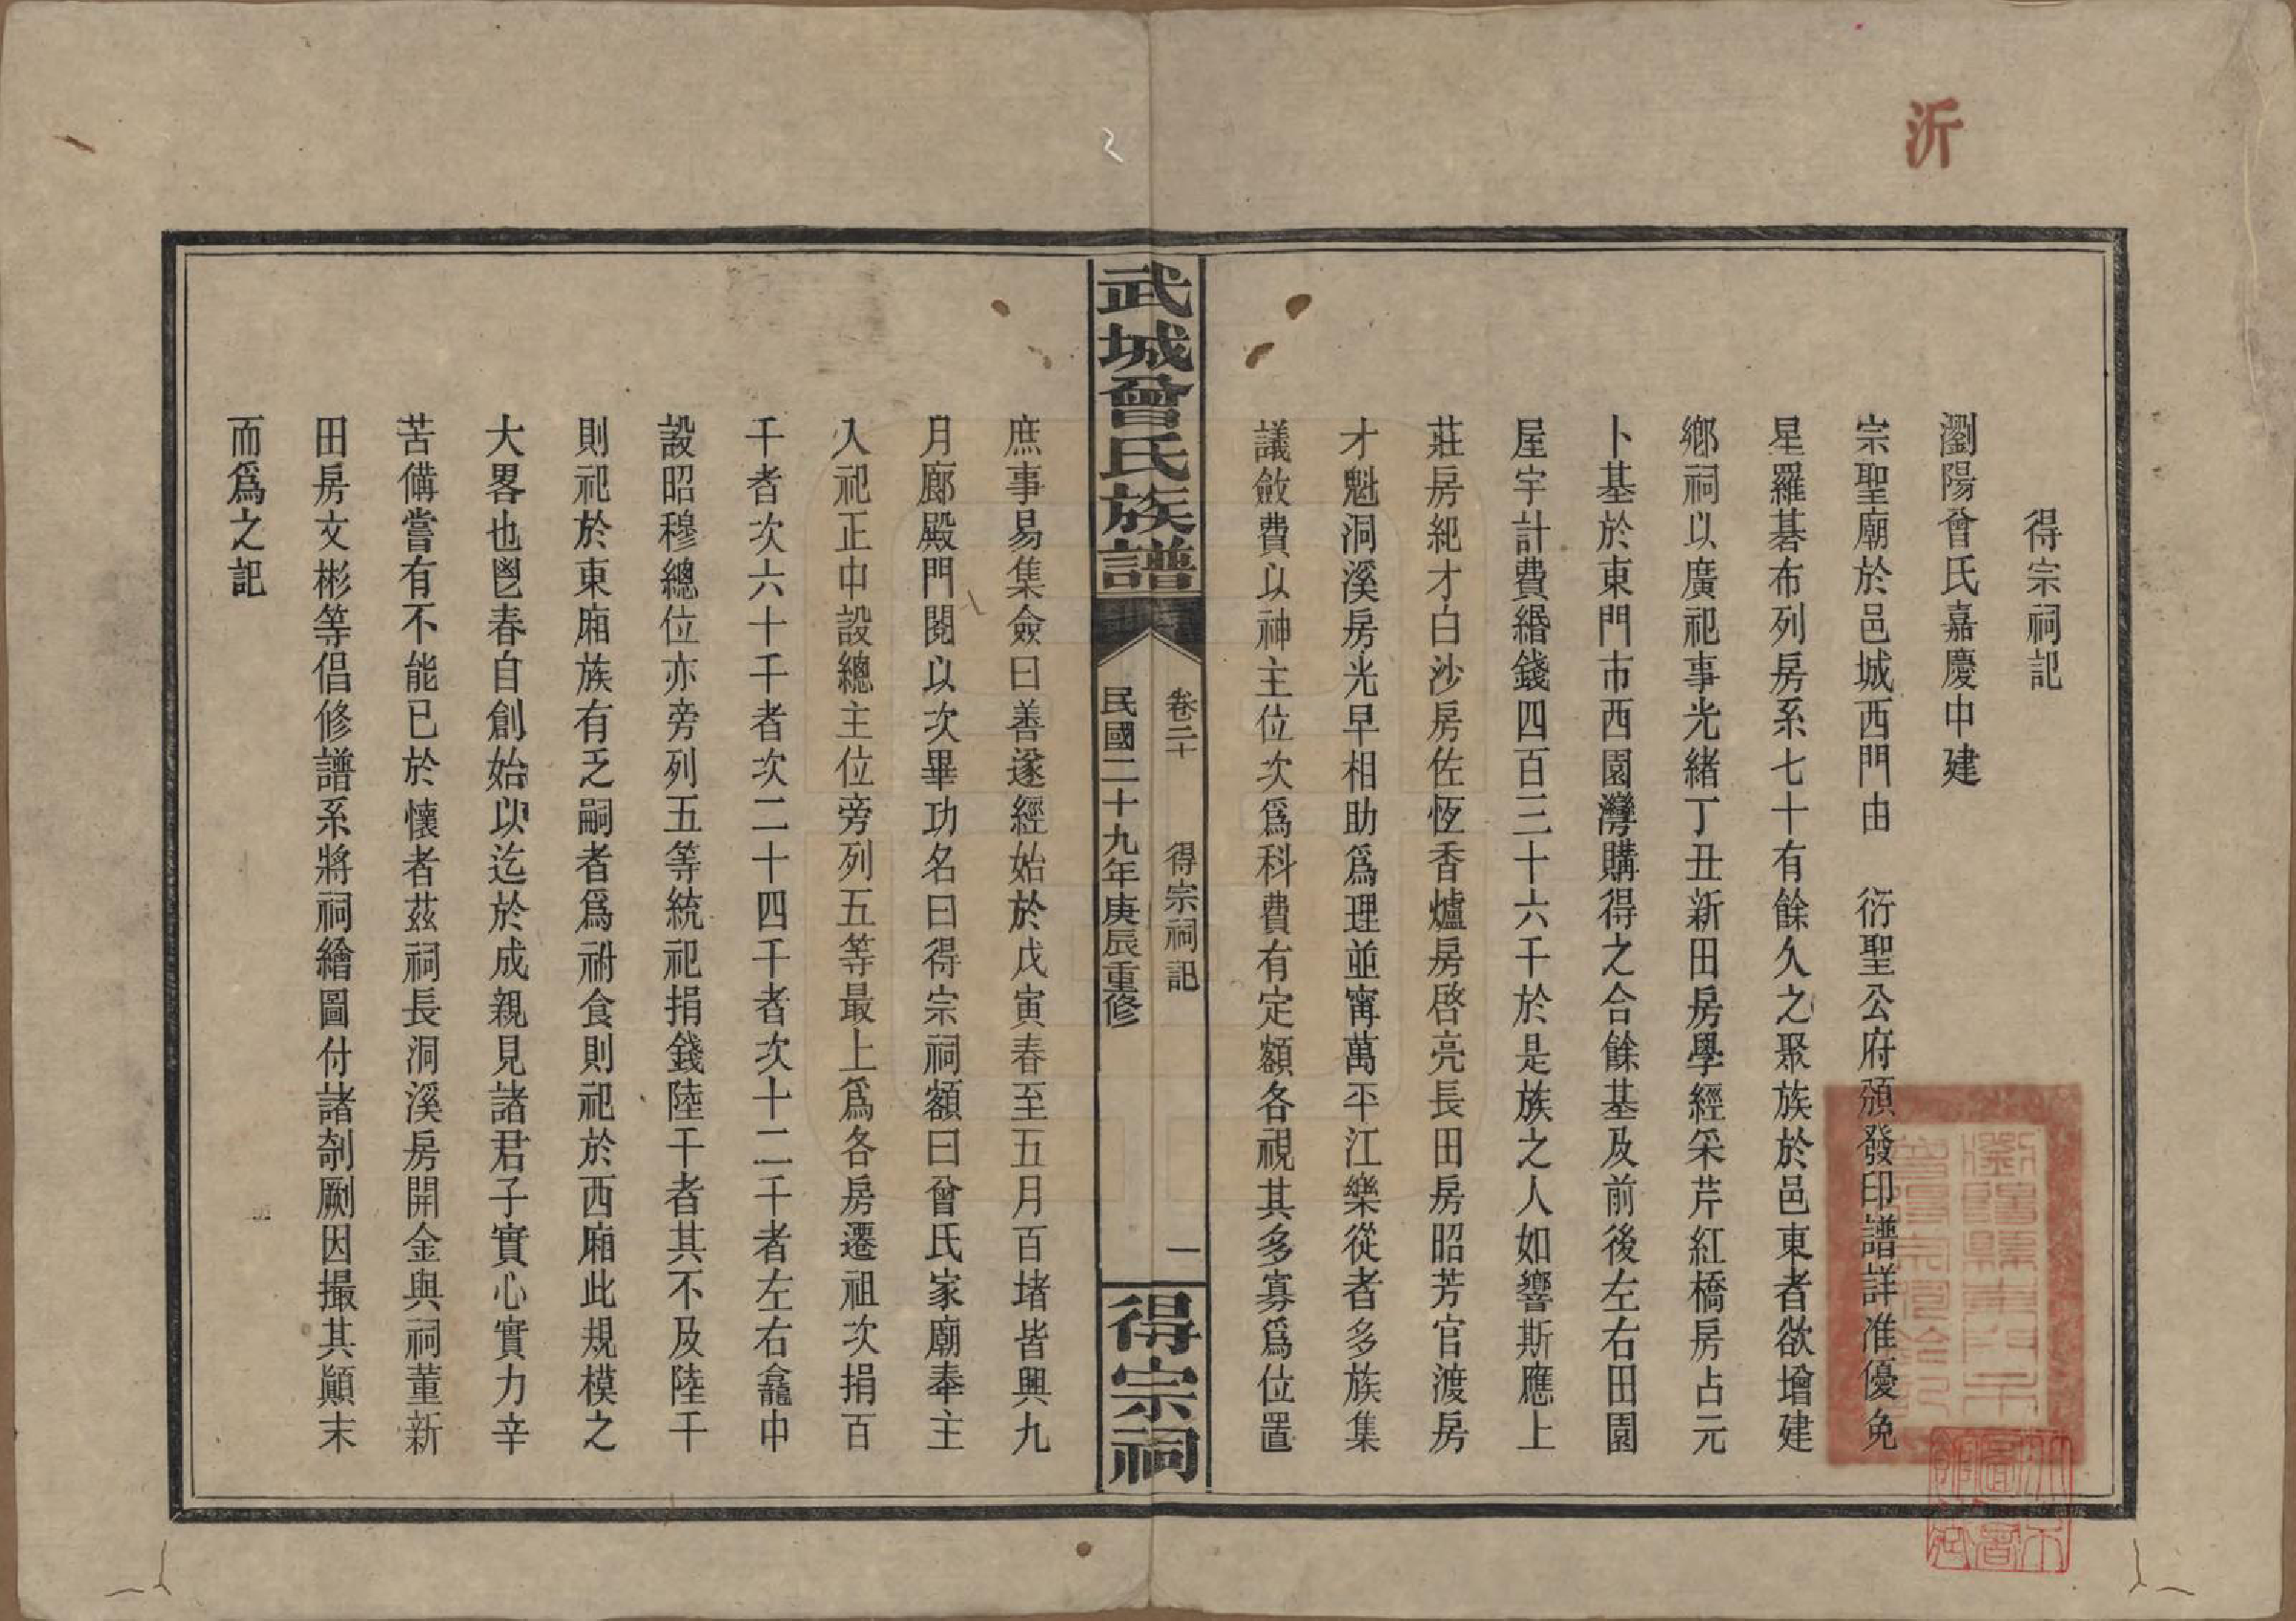 沂
得宗祠記
瀏陽曾氏嘉慶中建
宗聖廟於邑城西門由　衍聖公府頒發印譜詳准優免
星羅碁布列房系七十有餘久之聚族於邑東者欲增建
鄉祠以廣祀事光緒丁丑新田房學經采芹紅橋房占元
卜基於東門市西園灣購得之合餘基及前後左右田園
屋宇計費緡錢四百三十六千於是族之人如響斯應上
莊房紀才白沙房佐恆香爐房啓亮長田房昭芳官渡房
才魁洞溪房光早相助爲理並甯萬平江樂從者多族集
議斂費以神主位次爲科費有定額各視其多寡爲位置
武城曾氏族譜
卷二十　得宗祠記　一
民國二十九年庚辰重修
得宗祠
庶事易集僉曰善遂經始於戊寅春至五月百堵皆興九
月廊殿門閎以次畢功名曰得宗祠額曰曾氏家廟奉主
入祀正中設總主位旁列五等最上爲各房遷祖次捐百
千者次六十千者次二十四千者次十二千者左右龕中
設昭穆總位亦旁列五等統祀捐錢陸千者其不及陸千
則祀於東廂族有乏嗣者爲祔食則祀於西廂此規模之
大畧也鬯春自創始以迄於成親見諸君子實心實力辛
苦備嘗有不能已於懷者茲祠長洞溪房開金與祠董新
田房文彬等倡修譜系將祠繪圖付諸剞劂因撮其顚末
而爲之記